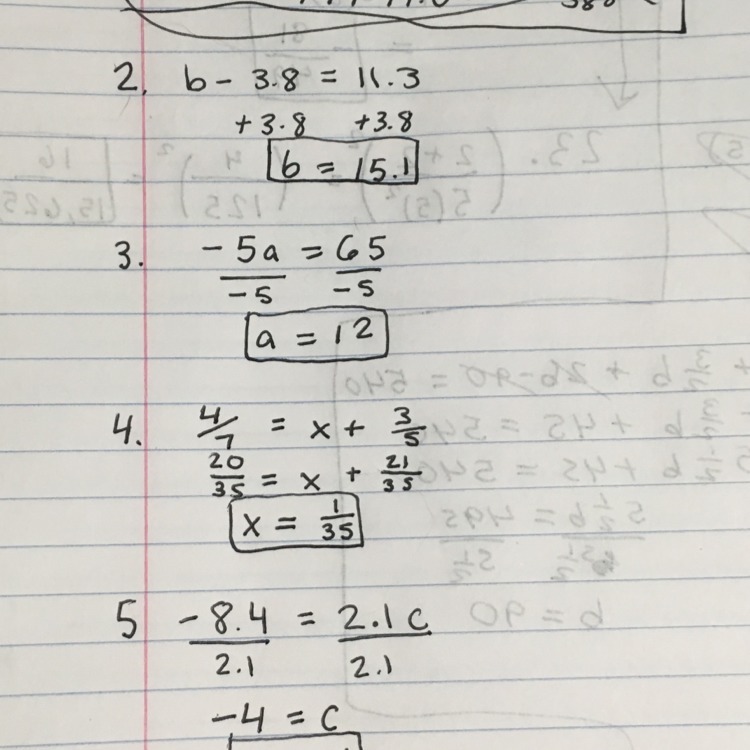 2. b - 3.8 = 11.3
+3.8 +3.8
b = 15.1
3. -5a = 65
-5 -5
a = 12
4. 4/7 = x + 3/5
20/35 = x + 21/35
x = 1/35
5 -8.4 = 2.1c
2.1 2.1
-4 = c